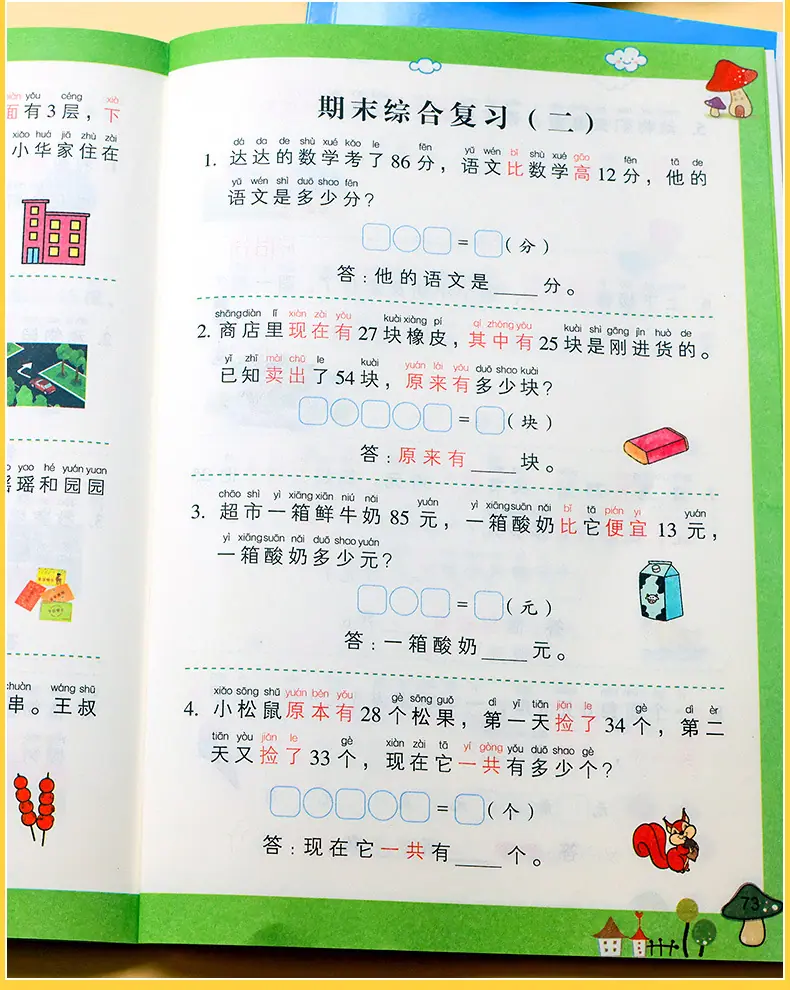 面有3层，下
小华家住在
瑶和园园
串。王叔
期末综合复习(二)
dá da de shù xué kǎo le fēn yǔ wén bǐ shù xué gāo fēn tā de
1. 达达的数学考了86分，语文比数学高12分，他的
yǔ wén shì duō shao fēn
语文是多少分？
=(分)
答：他的语文是____分。
shāngdiàn lǐ xiàn zài yǒu kuài xiàng pí qí zhōng yǒu kuài shì gāng jìn huò de
2. 商店里现在有27块橡皮，其中有25块是刚进货的。
yǐ zhī mài chū le kuài yuán lái yǒu duō shao kuài
已知卖出了54块，原来有多少块？
=(块)
答：原来有____块。
chāo shì yì xiāng xiān niú nǎi yuán yì xiāng suān nǎi bǐ tā pián yi yuán
3. 超市一箱鲜牛奶85元，一箱酸奶比它便宜13元，
yì xiāng suān nǎi duō shao yuán
一箱酸奶多少元？
=(元)
答：一箱酸奶____元。
xiǎo sōng shǔ yuán běn yǒu gè sōng guǒ dì yī tiān jiǎn le gè dì èr
4. 小松鼠原本有28个松果，第一天捡了34个，第二
tiān yòu jiǎn le gè xiàn zài tā yí gòng yǒu duō shao gè
天又捡了33个，现在它一共有多少个？
=(个)
答：现在它一共有____个。
73